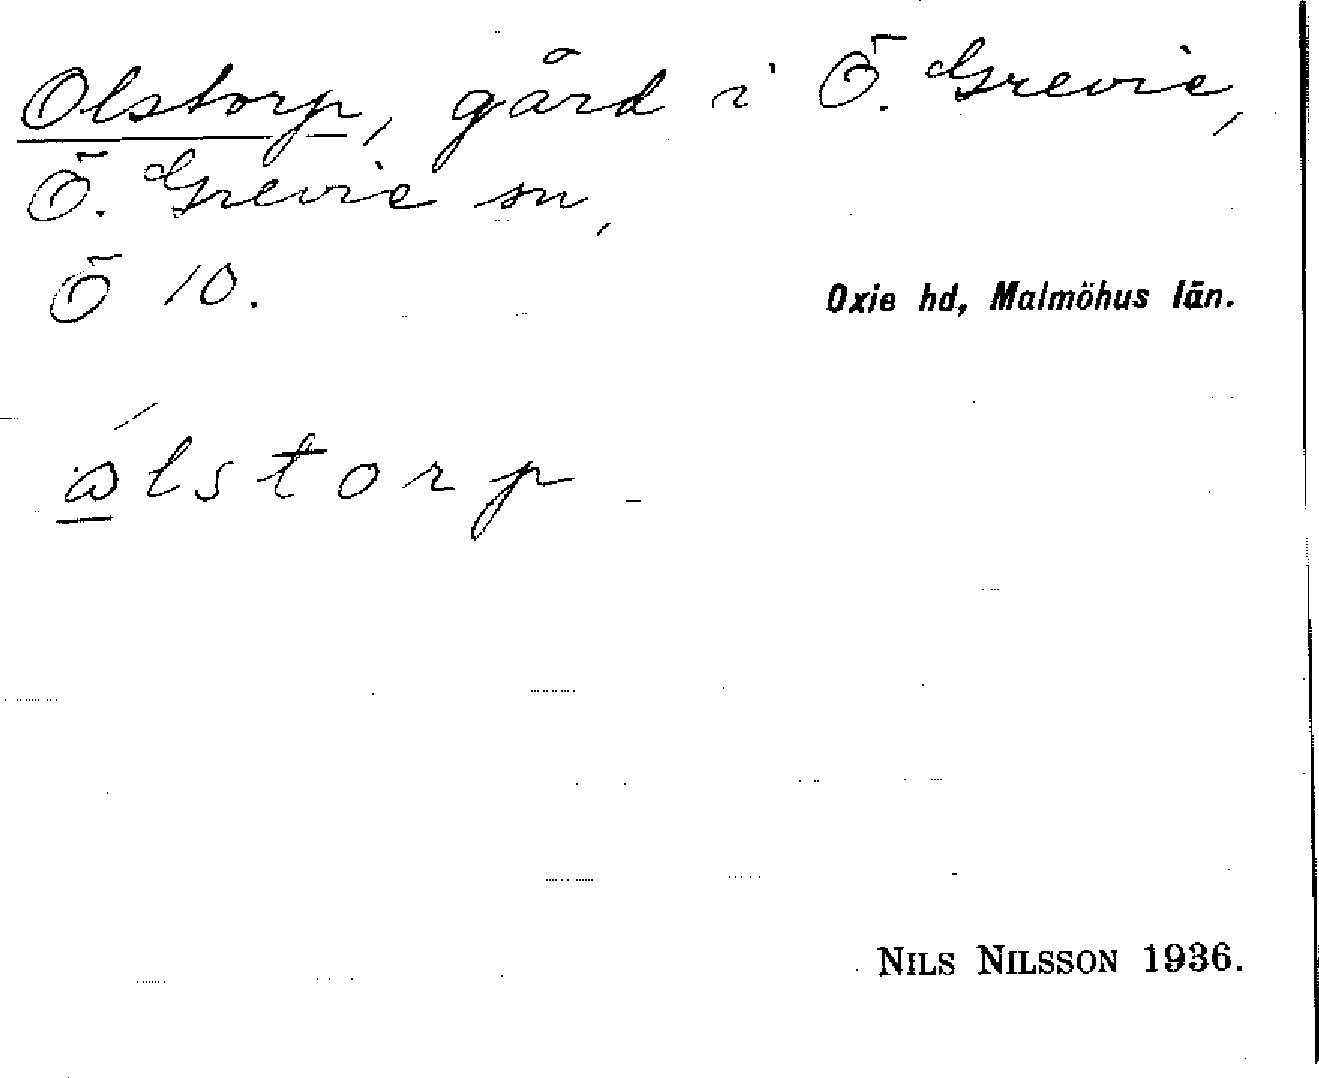 Olstorp, gård i Ö. Grevie,
Ö. Grevie sn,
Ö 10.
Oxie hd, Malmöhus län.
ålstorp
NILS NILSSON 1936.